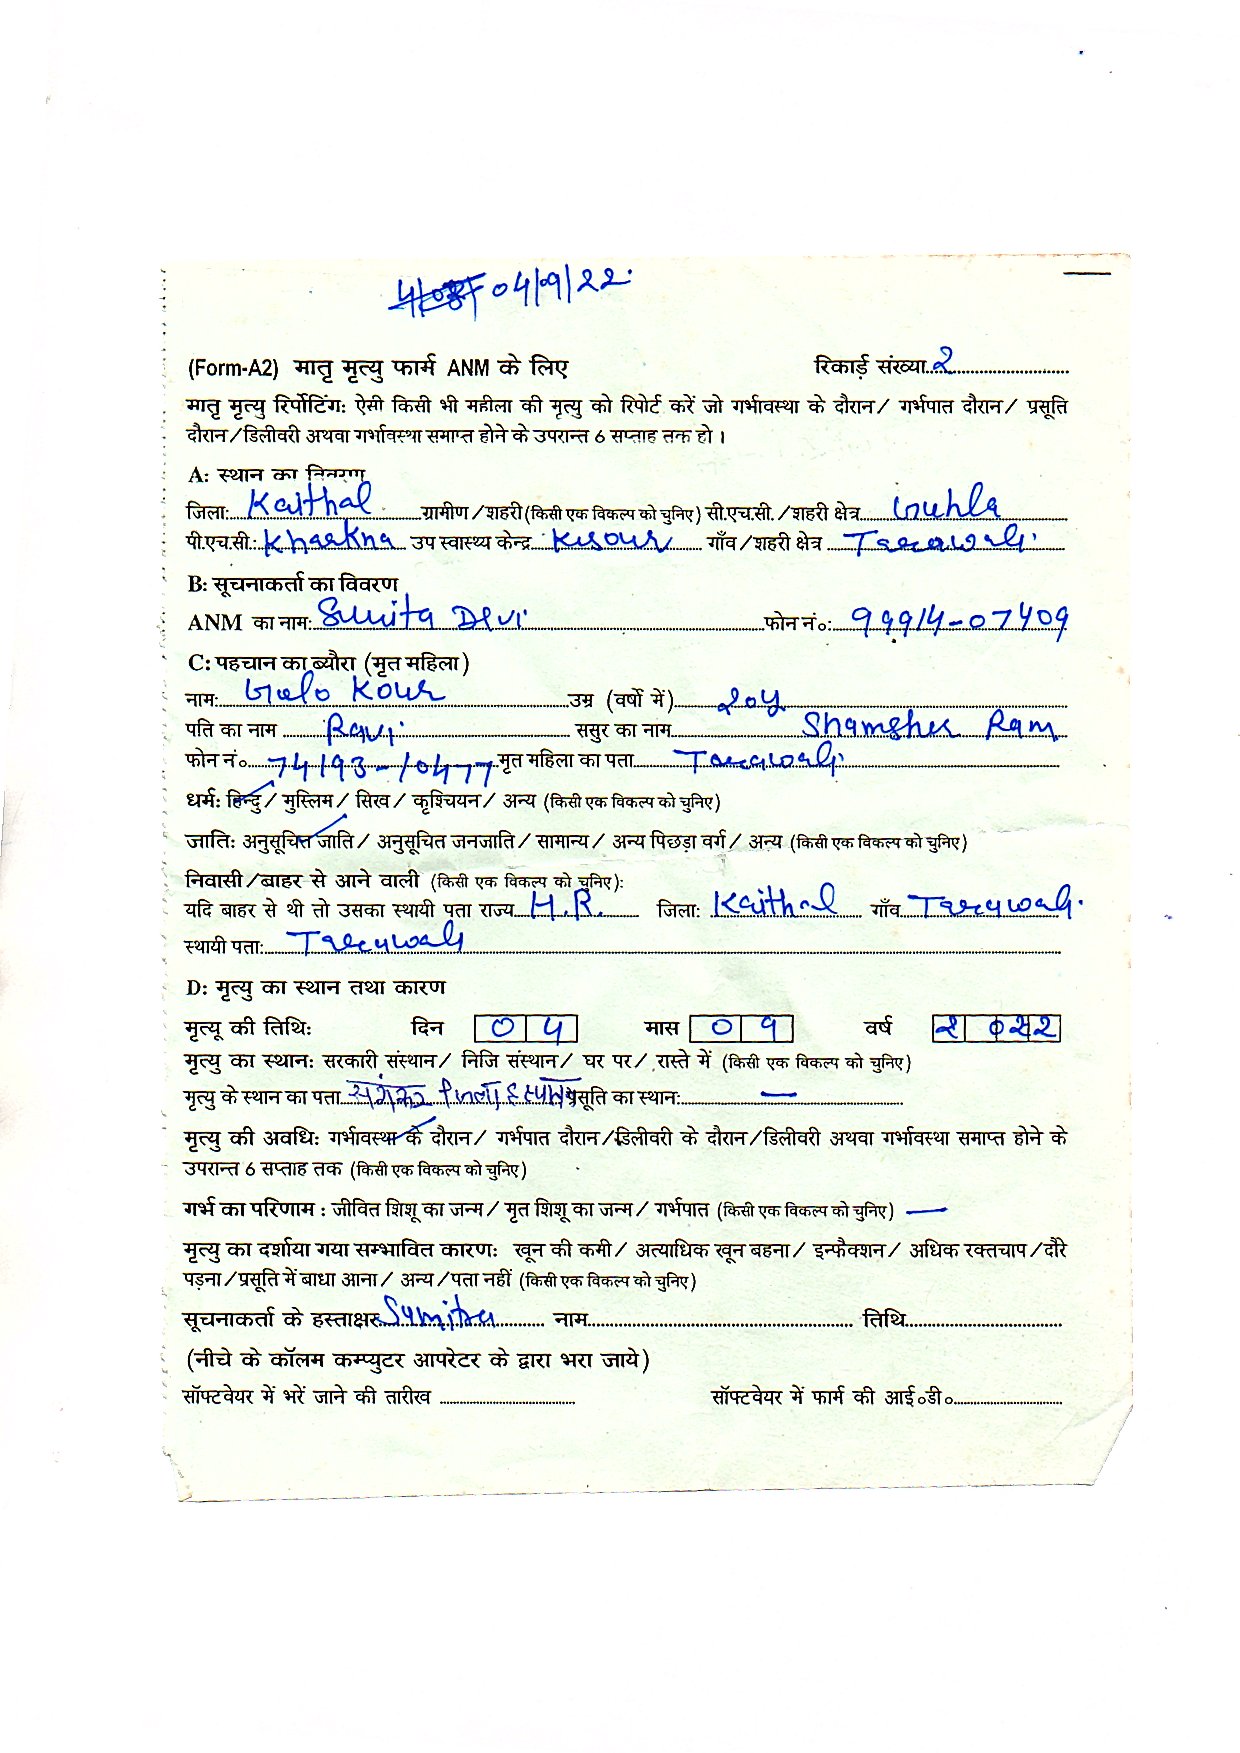 04/9/22
(Form-A2) मातृ मृत्यु फार्म ANM के लिए रिकार्ड संख्या 2
मातृ मृत्यु रिर्पोटिंग: ऐसी किसी भी महीला की मृत्यु को रिपोर्ट करें जो गर्भावस्था के दौरान/ गर्भपात दौरान/ प्रसूति
दौरान/डिलीवरी अथवा गर्भावस्था समाप्त होने के उपरान्त 6 सप्ताह तक हो ।
A: स्थान का विवरण
जिला: Kaithal ग्रामीण/शहरी (किसी एक विकल्प को चुनिए) सी.एच.सी./शहरी क्षेत्र Guhla
पी.एच.सी.: उप स्वास्थ्य केन्द्र गाँव/शहरी क्षेत्र Tarawali
B: सूचनाकर्ता का विवरण
ANM का नाम: Sumita Devi फोन नं०: 99914-07409
C: पहचान का ब्यौरा (मृत महिला)
नाम: Kour उम्र (वर्षो में) 20y
पति का नाम Ravi ससुर का नाम Shamsher Ram
फोन नं० 74193-10477 मृत महिला का पता Tarawali
धर्म: हिन्दु/ मुस्लिम/ सिख/ कृश्चियन/ अन्य (किसी एक विकल्प को चुनिए)
जाति: अनुसूचित जाति/ अनुसूचित जनजाति/ सामान्य/ अन्य पिछड़ा वर्ग/ अन्य (किसी एक विकल्प को चुनिए)
निवासी/बाहर से आने वाली (किसी एक विकल्प को चुनिए):
यदि बाहर से थी तो उसका स्थायी पता राज्य H.R. जिला: Kaithal गाँव Tarawali
स्थायी पता: Tarawali
D: मृत्यु का स्थान तथा कारण
मृत्यू की तिथि: दिन 04 मास 09 वर्ष 2022
मृत्यु का स्थान: सरकारी संस्थान/ निजि संस्थान/ घर पर/ रास्ते में (किसी एक विकल्प को चुनिए)
मृत्यु के स्थान का पता प्रसूति का स्थान: —
मृत्यु की अवधि: गर्भावस्था के दौरान/ गर्भपात दौरान/डिलीवरी के दौरान/डिलीवरी अथवा गर्भावस्था समाप्त होने के
उपरान्त 6 सप्ताह तक (किसी एक विकल्प को चुनिए)
गर्भ का परिणाम : जीवित शिशू का जन्म/ मृत शिशू का जन्म/ गर्भपात (किसी एक विकल्प को चुनिए) —
मृत्यु का दर्शाया गया सम्भावित कारण: खून की कमी/ अत्याधिक खून बहना/ इन्फैक्शन/ अधिक रक्तचाप/दौरे
पड़ना/प्रसूति में बाधा आना/ अन्य/पता नहीं (किसी एक विकल्प को चुनिए)
सूचनाकर्ता के हस्ताक्षर Sumita नाम तिथि
(नीचे के कॉलम कम्प्युटर आपरेटर के द्वारा भरा जाये)
सॉफ्टवेयर में भरें जाने की तारीख सॉफ्टवेयर में फार्म की आई०डी०